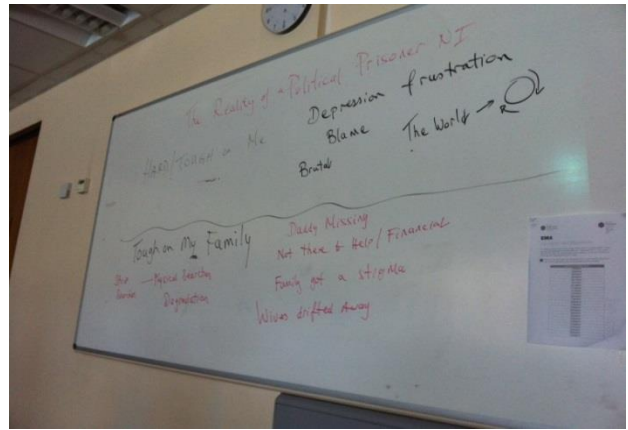 The Reality of a Political Prisoner NI
HARD/TOUGH on Me
Depression frustration
Blame
The World →
Brutal
Tough on My Family
Daddy Missing
Not there to Help / Financial
Family got a stigma
Wives drifted Away
Strip
Searches
Physical
Degradation